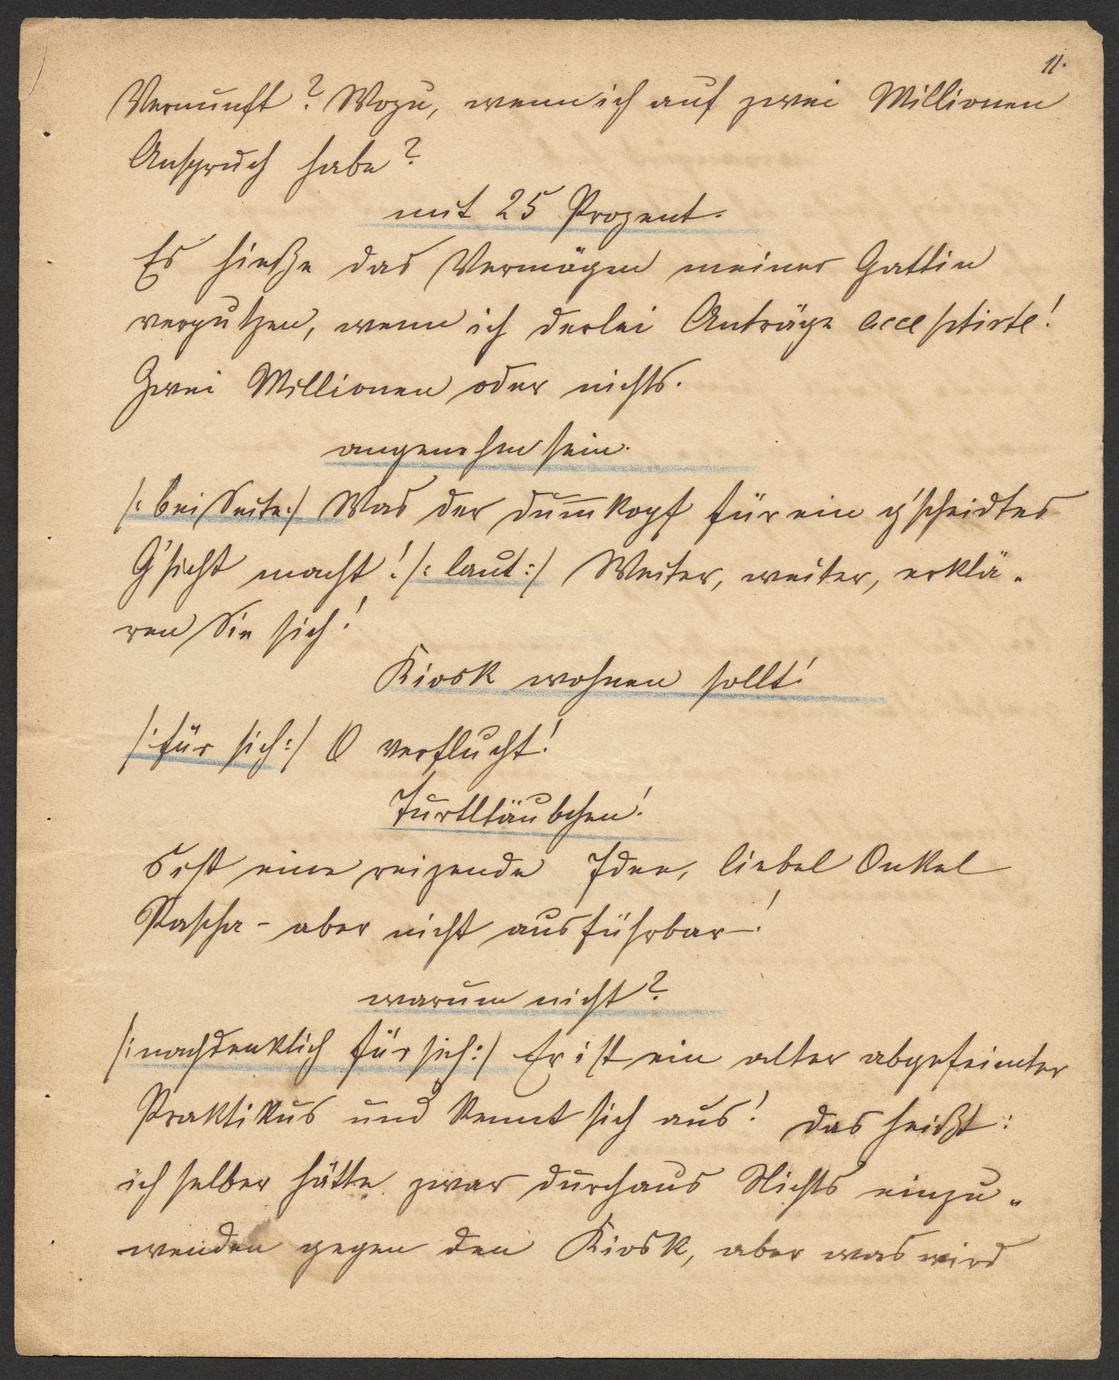 11.
Vernunft? Wozu, wenn ich auf zwei Millionen
Anspruch habe?
mit 25 Prozent.
Es hieße das Vermögen meiner Gattin
verputzen, wenn ich derlei Anträge acceptirte!
Zwei Millionen oder nichts.
angenehm sein.
/: bei Seite:/ Was der Dummkopf für ein g'scheidtes
G'sicht macht! /: laut:/ Weiter, weiter, erklä„
ren Sie sich!
Kiosk wohnen sollt!
/: für sich:/ O verflucht!
Turtltäubchen!
S ist eine reizende Idee, liebel Onkel
Pascha - aber nicht ausführbar!
warum nicht?
/: nachdenklich für sich:/ Er ist ein alter abgefeimter
Praktikus und kennt sich aus! Das heißt:
ich selber hätte zwar durchaus Nichts einzu„
wenden gegen den Kiosk, aber was wird